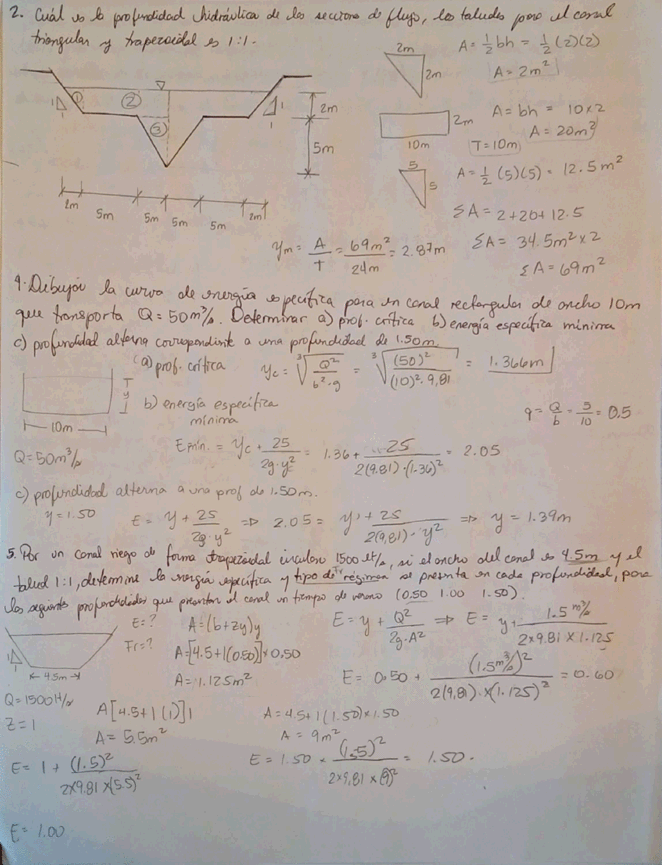 2. Cuál es la profundidad hidráulica de las secciones de flujo, los taludes para el canal
triangular y trapezoidal es 1:1.
2m
2m
A = ½bh = ½(2)(2)
A = 2m²
1
1
①
②
③
1
1
2m
5m
2m
10m
A = bh = 10x2
A = 20m²
T = 10m
5
5
A = ½(5)(5) = 12.5m²
2m
5m
5m
5m
5m
2m
ΣA = 2+20+12.5
ΣA = 34.5m² x 2
ΣA = 69m²
ym = A/T = 69m²/24m = 2.87m
4. Dibujar la curva de energía específica para un canal rectangular de ancho 10m
que transporta Q = 50m³/s. Determinar a) prof. crítica b) energía específica mínima
c) profundidad alterna correspondiente a una profundidad de 1.50m.
a) prof. crítica
yc = ∛(Q²/(b²·g)) = ∛((50)²/((10)²·9,81)) = 1.366m
y
10m
b) energía específica
mínima
q = Q/b = 5/10 = 0.5
Q = 50m³/s
Emin. = yc + 25/(2g·y²) = 1.36 + 25/(2(9.81)·(1.36)²) = 2.05
c) profundidad alterna a una prof de 1.50m.
y = 1.50
E = y + 25/(2g·y²) ⇒ 2.05 = y + 25/(2(9,81)·y²) ⇒ y = 1.39m
5. Por un canal riego de forma trapezoidal circulan 1500 lt/s, si el ancho del canal es 4.5m y el
talud 1:1, determine la energía específica y tipo de régimen se presenta en cada profundidad, para
las siguientes profundidades que presentan el canal en tiempo de verano (0.50 1.00 1.50).
E = ?
Fr = ?
A = (b+zy)y
A = [4.5+1(0.50)]x0.50
A = 1.125m²
E = y + Q²/(2g·A²) ⇒ E = y + 1.5m³/s/(2x9.81x1.125)
1
1
4.5m
E = 0.50 + (1.5m³/s)²/(2(9,81)x(1.125)²) = 0.60
Q = 1500 lt/s
Z = 1
A[4.5+1(1)]1
A = 5.5m²
A = 4.5+1(1.50)x1.50
A = 9m²
E = 1 + (1.5)²/(2x9.81x(5.5)²)
E = 1.50 + (1.5)²/(2x9,81x(9)²) = 1.50.
E = 1.00